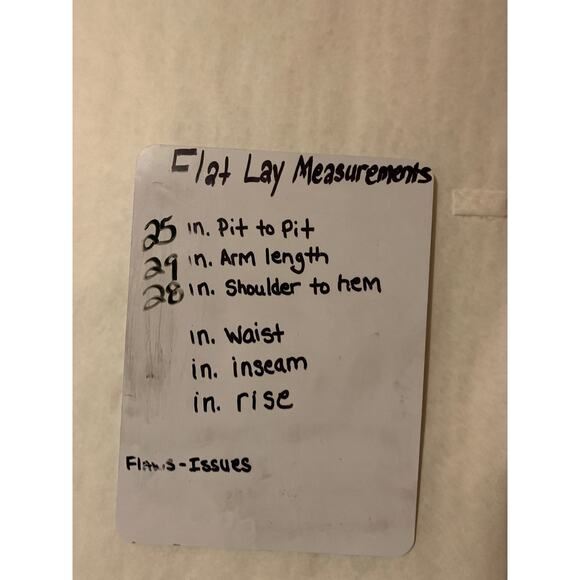 Flat Lay Measurements
25 in. Pit to Pit
29 in. Arm length
28 in. Shoulder to hem
in. Waist
in. inseam
in. rise
Flaws-Issues